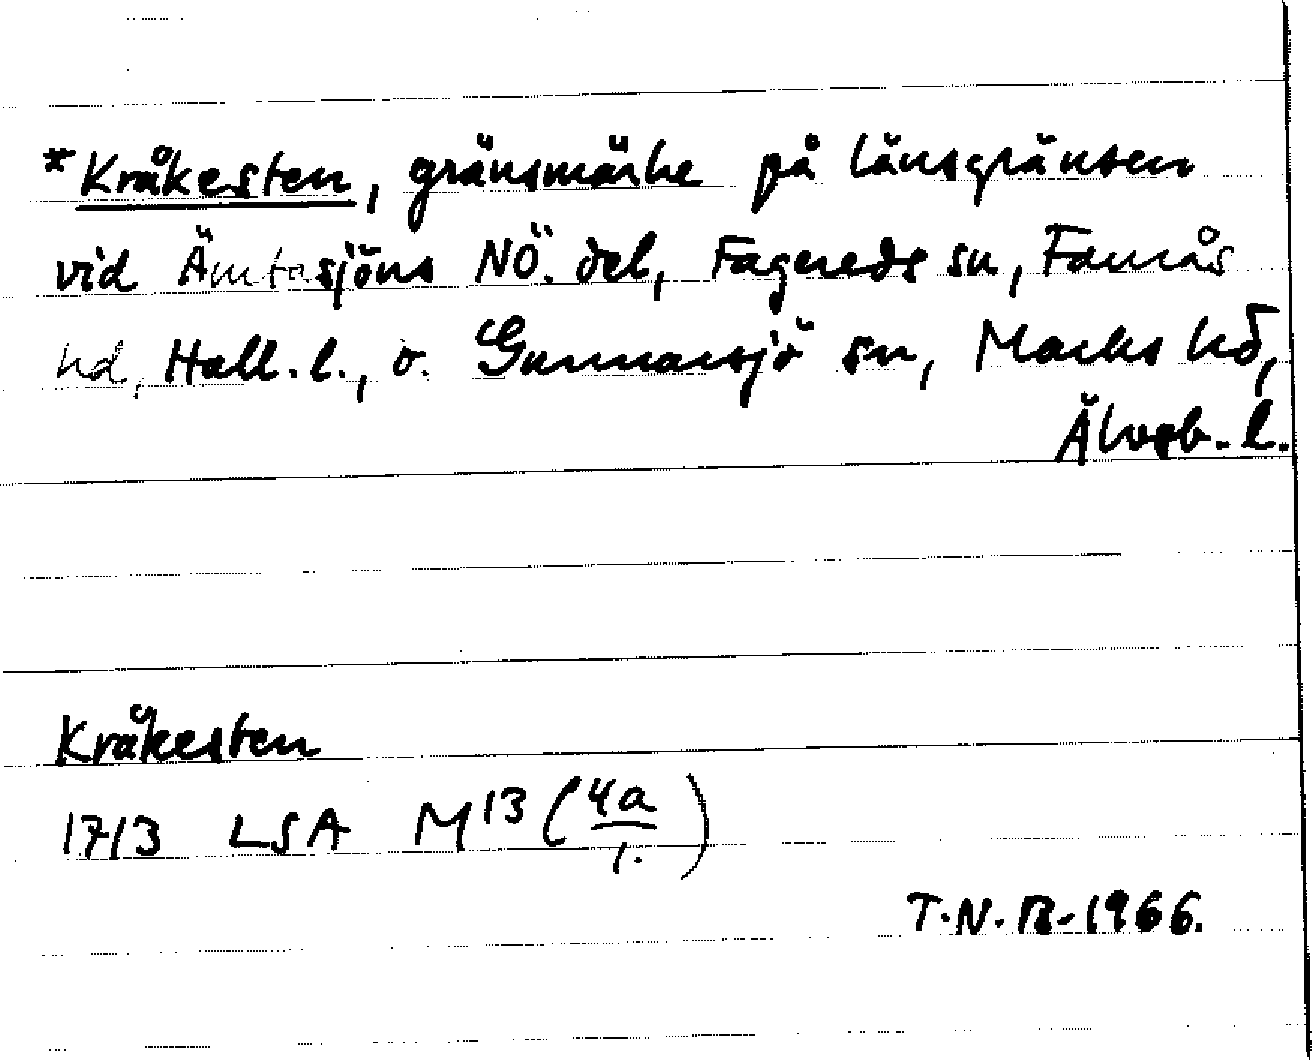 *Kråkesten, gränsmärke på länsgränsen
vid Ämtasjöns NÖ. del, Fagereds sn, Faurås
hd, Hall. l., o. Gunnarsjö sn, Marks hd,
Älvsb. l.
Kråkesten
1713 LSA M13 (4a/1.)
T.N.B. 1966.